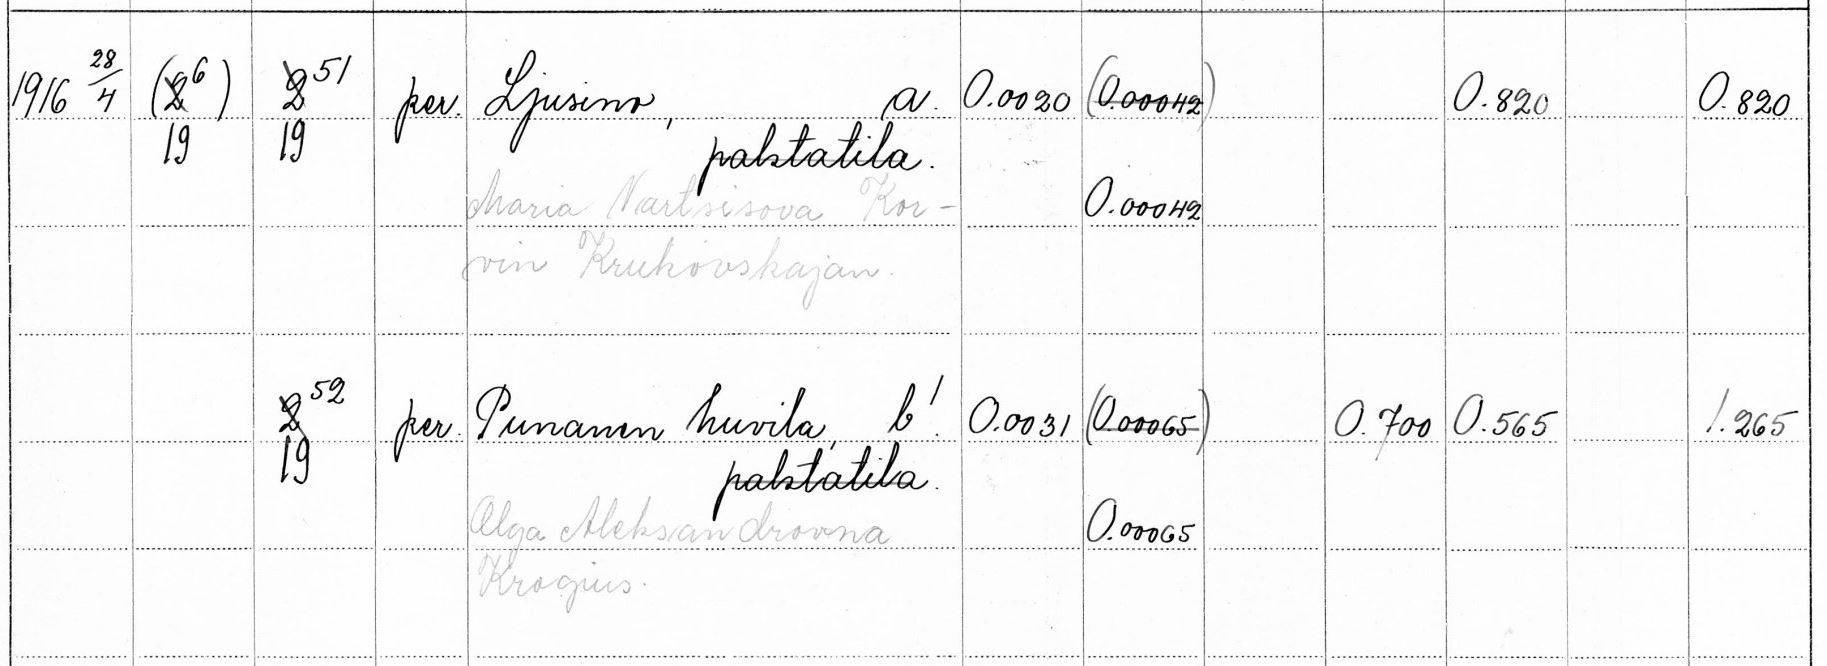 1916 28/4 (2 6) 2 51 per. Ljusino, a. 0.0020 (0.00042) 0.820 0.820
19 19 palstatila.
Maria Nartsisova Kor- 0.00042
vin Krukovskajan.
2 52 per. Punanen huvila, b! 0.0031 (0.00065) 0.700 0.565 1.265
19 palstatila.
Olga Aleksandrovna 0.00065
Krogius.